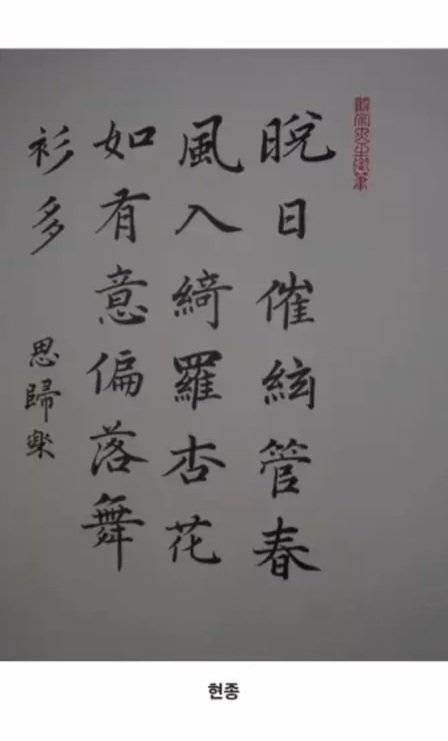 晚日催絃管春
風入綺羅杏花
如有意偏落舞
衫多
思歸樂
현종